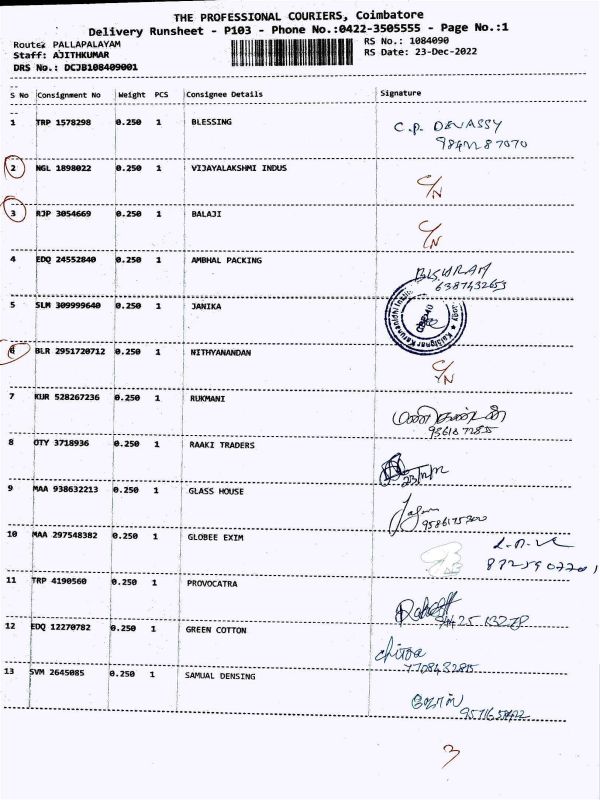 THE PROFESSIONAL COURIERS, Coimbatore
Delivery Runsheet - P103 - Phone No.:0422-3505555 - Page No.:1
Route: PALLAPALAYAM RS No.: 1084090
Staff: AJITHKUMAR RS Date: 23-Dec-2022
DRS No.: DCJB108409001
S No Consignment No Weight PCS Consignee Details Signature
1 TRP 1578298 0.250 1 BLESSING C.P. DEVASSY
2 NGL 1898022 0.250 1 VIJAYALAKSHMI INDUS C/N
3 RJP 3054669 0.250 1 BALAJI C/N
4 EDQ 24552840 0.250 1 AMBHAL PACKING
6387432653
5 SLM 309999640 0.250 1 JANIKA
6 BLR 2951720712 0.250 1 NITHYANANDAN C/N
7 KUR 528267236 0.250 1 RUKMANI மணிகண்டன்
8 OTY 3718936 0.250 1 RAAKI TRADERS
9 MAA 938632213 0.250 1 GLASS HOUSE
10 MAA 297548382 0.250 1 GLOBEE EXIM
11 TRP 4190560 0.250 1 PROVOCATRA
12 EDQ 12270782 0.250 1 GREEN COTTON chitra
7708432815
13 SVM 2645085 0.250 1 SAMUAL DENSING
3